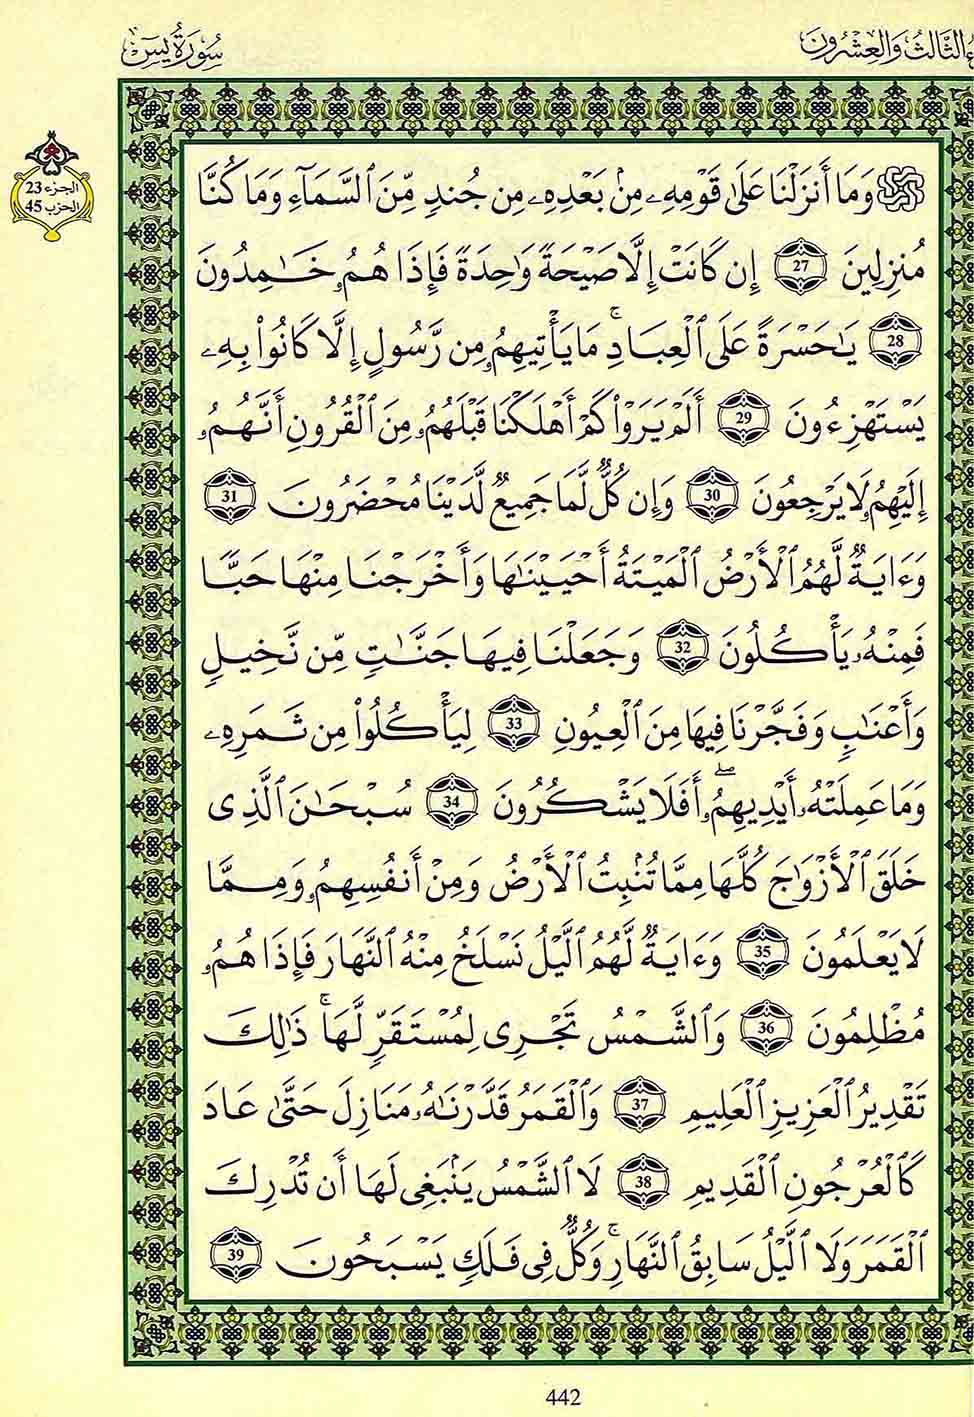 ءالثَّالِثُ وَالعِشْرُونَ
سُورَةُ يسٓ
الجزء 23
الحزب 45
۞ وَمَا أَنزَلْنَا عَلَىٰ قَوْمِهِۦ مِنۢ بَعْدِهِۦ مِن جُندٍ مِّنَ ٱلسَّمَآءِ وَمَا كُنَّا
مُنزِلِينَ 27 إِن كَانَتْ إِلَّا صَيْحَةً وَٰحِدَةً فَإِذَا هُمُۥ خَـٰمِدُونَ
28 يَـٰحَسْرَةً عَلَى ٱلْعِبَادِ ۚ مَا يَأْتِيهِمُۥ مِن رَّسُولٍ إِلَّا كَانُوا۟ بِهِۦ
يَسْتَهْزِءُونَ 29 أَلَمْ يَرَوْا۟ كَمْ أَهْلَكْنَا قَبْلَهُمُۥ مِنَ ٱلْقُرُونِ أَنَّهُمُۥ
إِلَيْهِمُۥ لَا يَرْجِعُونَ 30 وَإِن كُلٌّ لَّمَا جَمِيعٌ لَّدَيْنَا مُحْضَرُونَ 31
وَءَايَةٌ لَّهُمُ ٱلْأَرْضُ ٱلْمَيْتَةُ أَحْيَيْنَـٰهَا وَأَخْرَجْنَا مِنْهَا حَبًّا
فَمِنْهُۥ يَأْكُلُونَ 32 وَجَعَلْنَا فِيهَا جَنَّـٰتٍ مِّن نَّخِيلٍ
وَأَعْنَـٰبٍ وَفَجَّرْنَا فِيهَا مِنَ ٱلْعِيُونِ 33 لِيَأْكُلُوا۟ مِن ثَمَرِهِۦ
وَمَا عَمِلَتْهُۥ أَيْدِيهِمُۥ ۖ أَفَلَا يَشْكُرُونَ 34 سُبْحَـٰنَ ٱلَّذِى
خَلَقَ ٱلْأَزْوَٰجَ كُلَّهَا مِمَّا تُنۢبِتُ ٱلْأَرْضُ وَمِنْ أَنفُسِهِمُۥ وَمِمَّا
لَا يَعْلَمُونَ 35 وَءَايَةٌ لَّهُمُ ٱلَّيْلُ نَسْلَخُ مِنْهُ ٱلنَّهَارَ فَإِذَا هُمُۥ
مُظْلِمُونَ 36 وَٱلشَّمْسُ تَجْرِى لِمُسْتَقَرٍّ لَّهَا ۚ ذَٰلِكَ
تَقْدِيرُ ٱلْعَزِيزِ ٱلْعَلِيمِ 37 وَٱلْقَمَرُ قَدَّرْنَـٰهُۥ مَنَازِلَ حَتَّىٰ عَادَ
كَٱلْعُرْجُونِ ٱلْقَدِيمِ 38 لَا ٱلشَّمْسُ يَنۢبَغِى لَهَا أَن تُدْرِكَ
ٱلْقَمَرَ وَلَا ٱلَّيْلُ سَابِقُ ٱلنَّهَارِ ۚ وَكُلٌّ فِى فَلَكٍ يَسْبَحُونَ 39
442